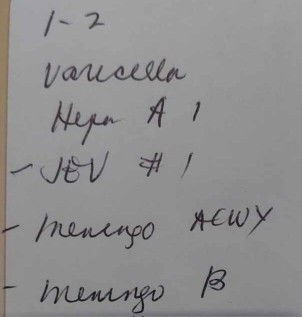 1-2
Varicella
Hepa A 1
- JEV # 1
- Meningo ACWY
- Meningo B